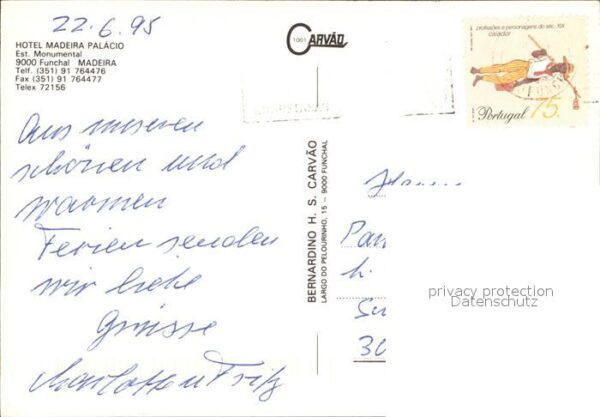 22.6.95
HOTEL MADEIRA PALÁCIO
Est. Monumental
9000 Funchal MADEIRA
Telf. (351) 91 764476
Fax (351) 91 764477
Telex 72156
Aus unseren
schönen und
warmen
Ferien senden
wir liebe
Grüsse
Charlotte u Fritz
1001 CARVÃO
BERNARDINO H. S. CARVÃO
LARGO DO PELOURINHO, 15 - 9000 FUNCHAL
profissões e personagens do séc. XIX
caiador
Portugal 75.
Pan
h.
30
privacy protection
Datenschutz